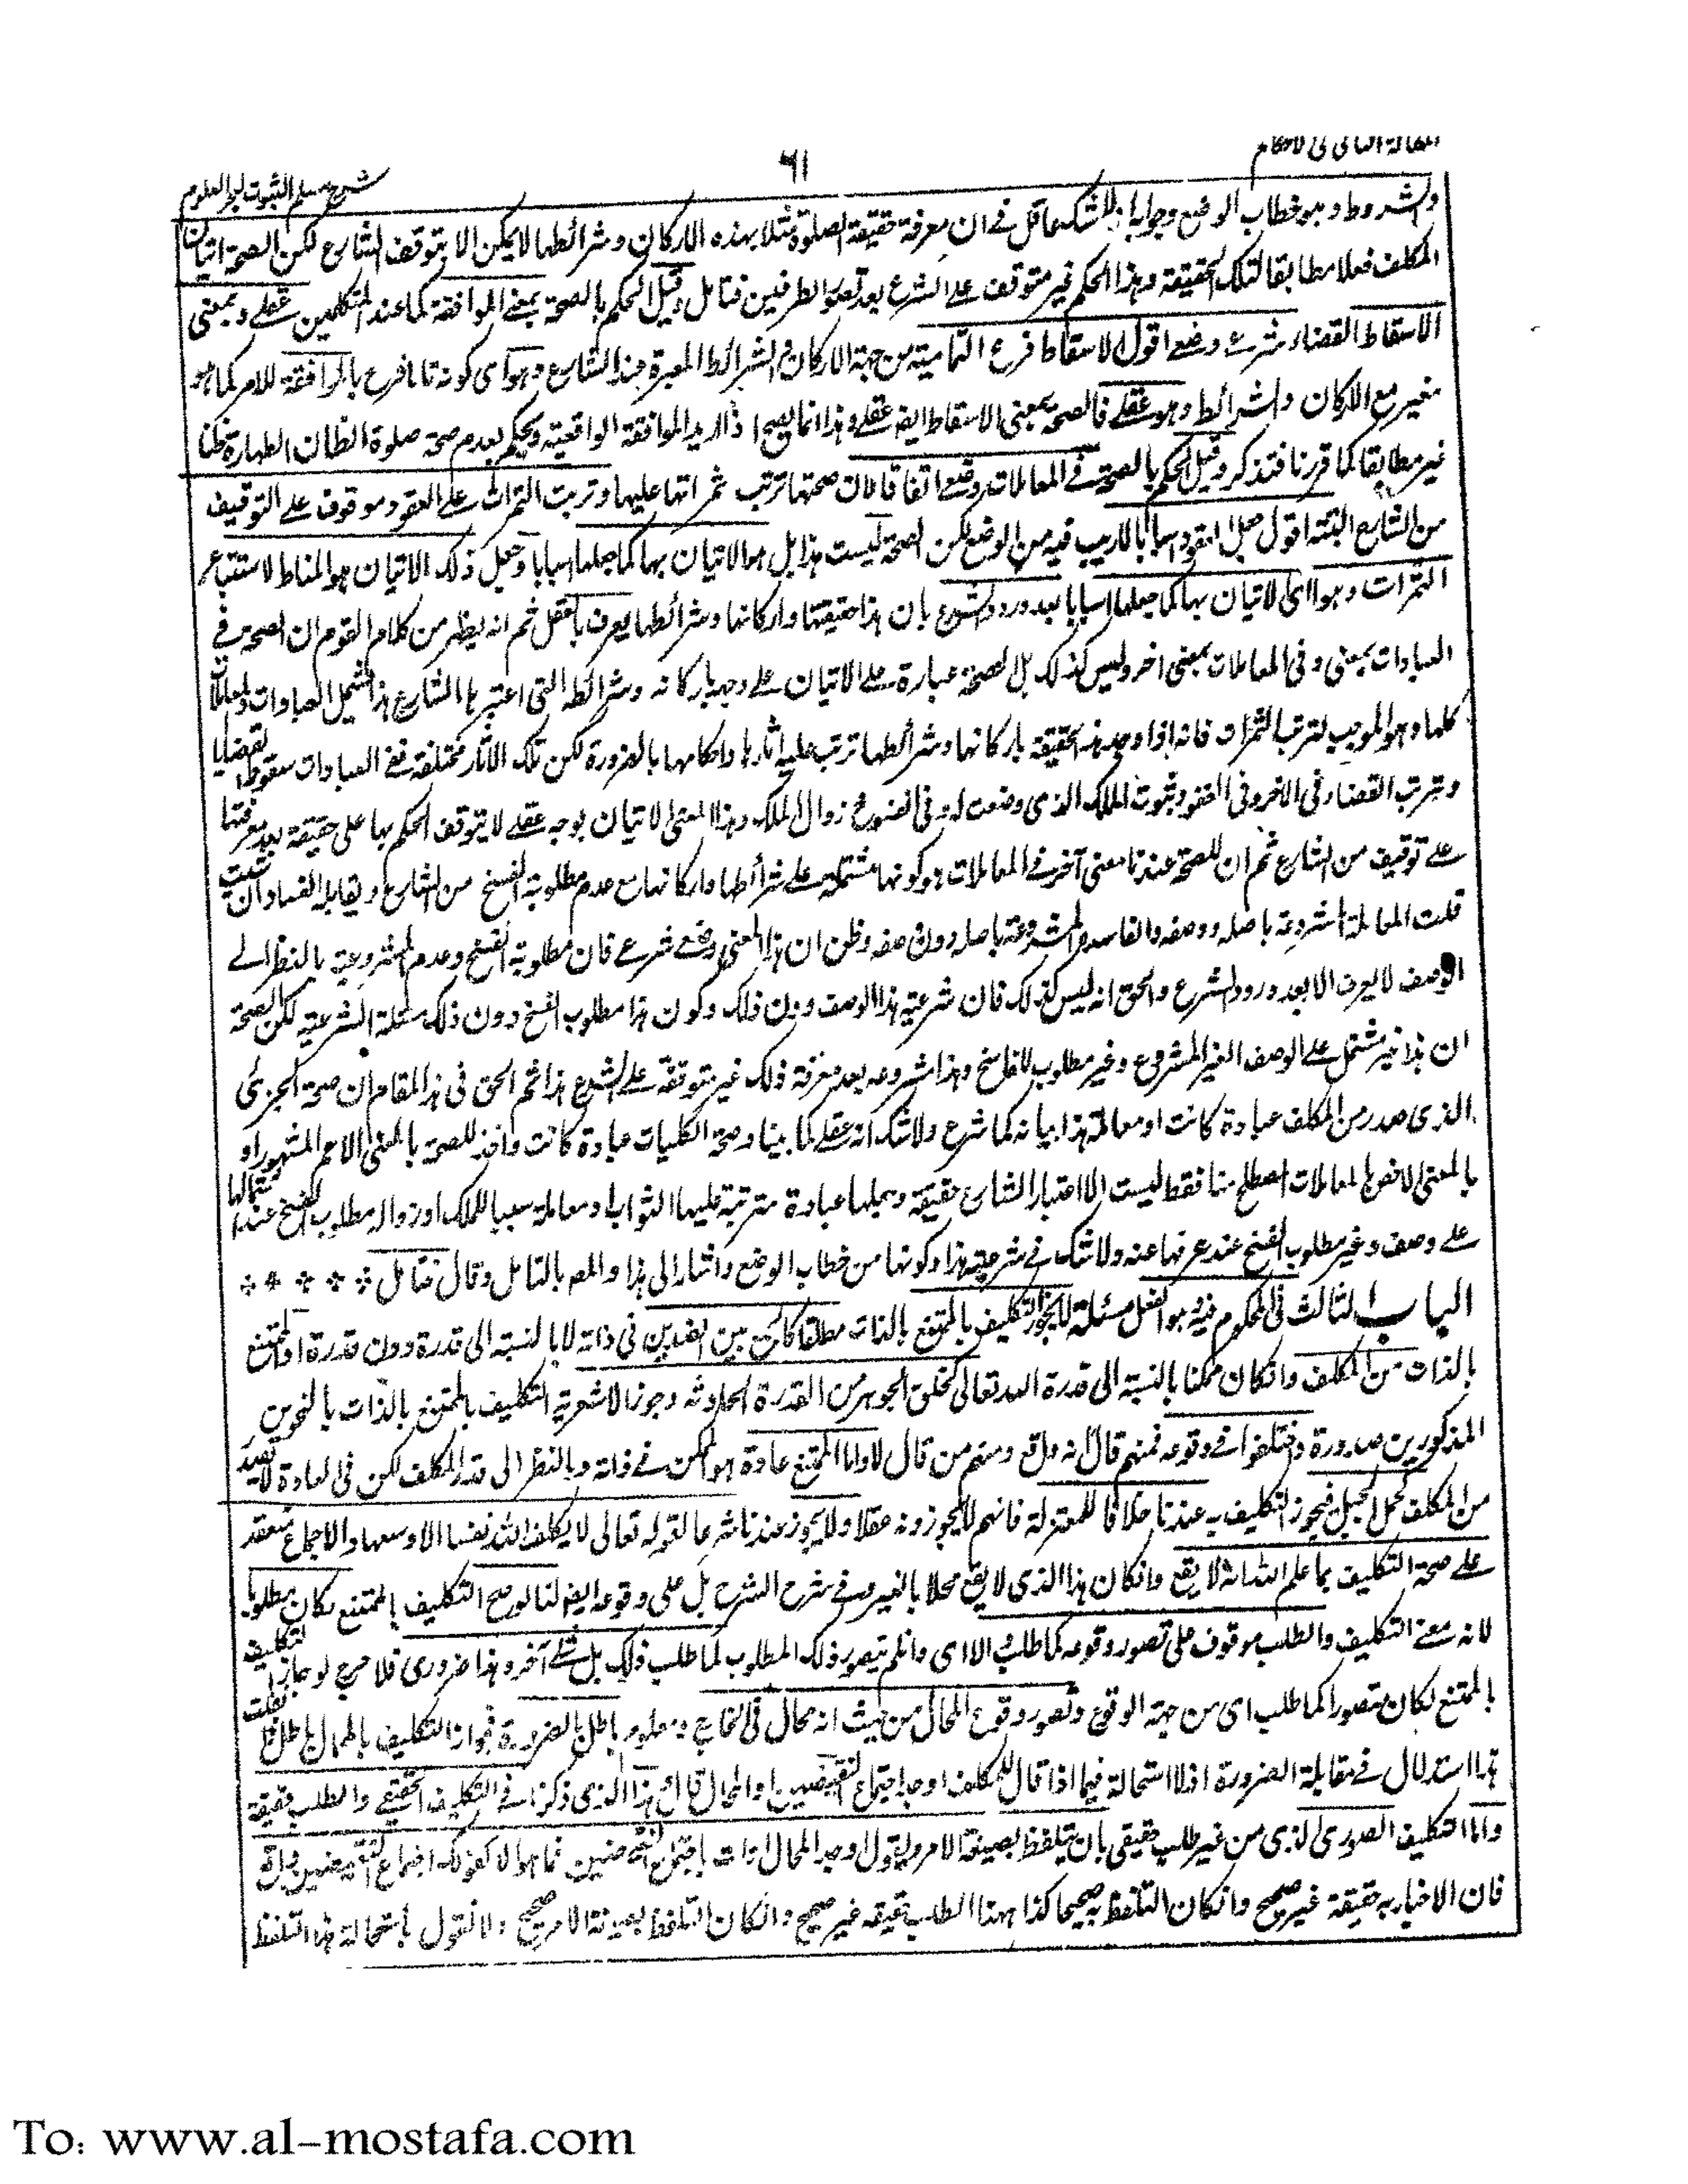 المقالة الثانية فى الاحكام
٦١
شرح مسلم الثبوت لبحر العلوم
والشروط وهو خطاب الوضع وجوابه لا شك عاقل فى ان معرفة حقيقة الصلوة مثلا بهذه الاركان وشرائطها لا يمكن الا بتوقف الشارع لكن الصحة اتيان
المكلف فعلا مطابقا لتلك الحقيقة وهذا الحكم غير متوقف على الشرع بعد تصور الطرفين فتامل وقيل الحكم بالصحة بمعنى الموافقة كما عند المتكلمين عقلى وبمعنى
الاسقاط القضاء شرعى وضعى اقول الاسقاط فرع التمامية من جهة الاركان والشرائط المعبرة عند الشارع وهو اى كونه تاما فرع بالموافقة للامر كما هو
مغير مع الاركان والشرائط وهو عقلى فالصحة بمعنى الاسقاط ايضا عقلى وهذا انما يصح اذا اريد الموافقة الواقعية ويحكم بعدم صحة صلوة الظان الطهارة ظنا
غير مطابق كما قررنا فتذكر وقيل الحكم بالصحة فى المعاملات وضعى اتفاقا لان صحتها ترتب ثمراتها عليها وترتب الثمرات على العقود موقوف على التوقيف
من الشارع البتة اقول جعل العقود اسبابا لا ريب فيه من الوضع لكن الصحة ليست هذا بل هو الاتيان بها كما جعلها اسبابا وجعل ذلك الاتيان هو المناط لاستتباع
الثمرات وهو اى الاتيان بها كما جعلها اسبابا بعد ورود الشرع بان هذا حقيقتها واركانها وشرائطها يعرف بالعقل ثم انه يظهر من كلام القوم ان الصحة فى
العبادات بمعنى وفى المعاملات بمعنى اخر وليس كذلك بل الصحة عبارة على الاتيان على وجه باركانه وشرائطه التى اعتبرها الشارع هذا يشمل العبادات والمعاملات
كلها وهو الموجب لترتب الثمرات فانه اذا وجد هذه الحقيقة باركانها وشرائطها ترتب عليه اثارها واحكامها بالضرورة لكن تلك الاثار مختلفة ففى العبادات سقوط القضايا
وترتب القضاء فى الاخر وفى العقود ثبوت الملك الذى وضعت له وفى الفسوخ زوال الملك وهذا المعنى الاتيان بوجه عقلى لا يتوقف الحكم بها على حقيقة بعد معرفتها
على توقيف من الشارع ثم ان للصحة عندنا معنى آخر فى المعاملات هو كونها مشتملة على شرائطها واركانها مع عدم مطلوبية الفسخ من الشارع ويقابله الفساد ان شئت
قلت المعاملة المشروعة باصله ووصفه والفاسد المشروعة باصله دون وصفه وظن ان هذا المعنى وضعى شرعى فان مطلوبية الفسخ وعدم المشروعية بالنظر الى
الوصف لا يعرف الا بعد ورود الشرع والحق انه ليس كذلك فان شرعية هذا الوصف دون ذلك وكون هذا مطلوب الفسخ دون ذلك مسئلة الشرعية لكن الصحة
ان هذا غير مشتمل على الوصف الغير المشروع وغير مطلوب الفاسخ وهذا مشروعه بعد معرفة ذلك غير متوقفة على الشرع هذا ثم الحق فى هذا المقام ان صحة الجزئى
الذى صدر من المكلف عبادة كانت او معاملة هذا بيانه كما شرع ولا شك انه عقلى كما بينا وصحة الكليات عبادة كانت واخذ للصحة بالمعنى الاعم المشهور او
بالمعنى الاخص المعاملات المصطلح منا فقط ليست الا اعتبار الشارع حقيقة وجعلها عبادة مترتبة عليها الثواب او معاملة سببا للملك او زواله مطلوب الفسخ عند اشتمالها
على وصف وغير مطلوب الفسخ عند عرفها عنه ولا شك فى شرعية هذا وكونها من خطاب الوضع واشار الى هذا والمصه بالتامل وقال فتامل
الباب الثالث فى المحكوم فيه وهو الفعل مسئلة لا يجوز التكليف بالممتنع بالذات مطلقا كالجمع بين الضدين فى ذاته لا بالنسبة الى قدرة دون قدرة او الممتنع
بالذات من المكلف وانكان ممكنا بالنسبة الى قدرة الله تعالى كخلق الجوهر من القدرة الحادثة وجوز الاشعرية التكليف بالممتنع بالذات بالنحوين
المذكورين صدورة واختلفوا فى وقوعه فمنهم قال انه واقع ومنهم من قال لا واما الممتنع عادة وهو الممكن فى ذاته وبالنظر الى قدرة المكلف لكن فى العادة لا يصدر
من المكلف كحمل الجبل فيجوز التكليف به عندنا خلافا للمعتزلة فانهم لا يجوزونه عقلا ولا يجوز عندنا شرعا لقوله تعالى لا يكلف الله نفسا الا وسعها والاجماع منعقد
على صحة التكليف بما علم الله انه لا يقع وانكان هذا الذى لا يقع محلا بالغير فى شرح الشرح بل على وقوعه ايضا لنا لو صح التكليف بالممتنع لكان مطلوبا
لانه معنى التكليف والطلب موقوف على تصور وقوعه كما طلب والا اى وان لم يتصور ذلك المطلوب لما طلب ذلك بل شئ آخر وهذا ضرورى فلا صح لو جاز التكليف
بالممتنع لكان متصورا كما طلب اى من جهة الوقوع وتصور وقوع المحال من حيث انه محال فى الخارج ومعلوم باطل بالضرورة فجواز التكليف بالمحال باطل فان قلت
هذا استدلال فى مقابلة الضرورة اذ لا استحالة فيما اذا قال للمكلف اوجد اجتماع النقيضين او المحال قال هذا الذى ذكرنا فى التكليف الحقيقى والطلب حقيقة
واما التكليف الصورى الذى من غير طلب حقيقى بان يتلفظ بصيغة الامر ويقول اوجد المحال او ائت باجتماع النقيضين فما هو الا كقولك اجتماع النقيضين واقع
فان الاخبار به حقيقة غير صحيح وانكان التلفظ به صحيحا كذا بهذا الطلب حقيقة غير صحيح وانكان التلفظ بصيغة الامر صحيح ولا نقول باستحالة هذا التلفظ
To: www.al-mostafa.com